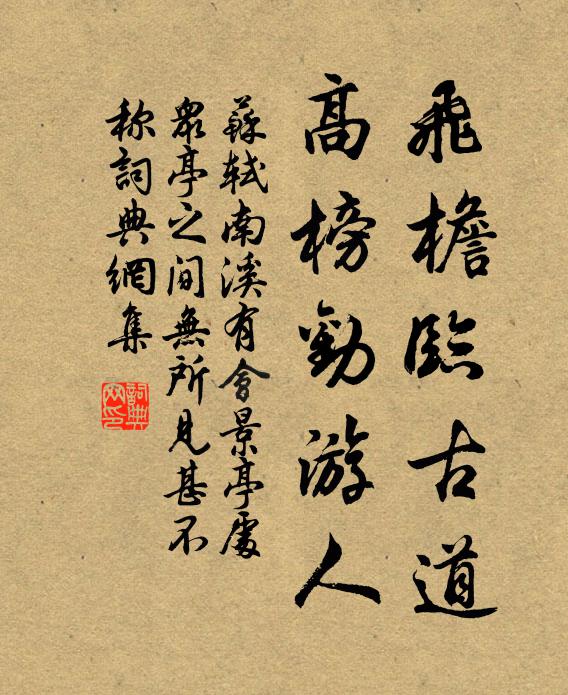 飛檐臨古道
高榜勸游人
蘇軾南溪有會景亭處
眾亭之間無所見甚不
称詞典網集
詞典
网印